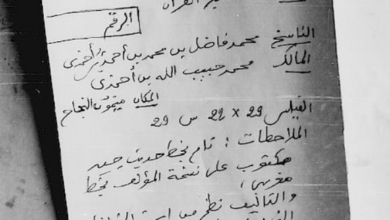 الرقم
الناسخ محمد فاضل بن محمد بن أحمد
المالك محمد حبيب الله بن أحمزي
المكان ميمون النجاح
القياس 29 × 22 س 29
الملاحظات : تام بخط حديث جيد
مكتوب على نسخة المؤلف بخط
مغربي ،
والتأليف نظم من